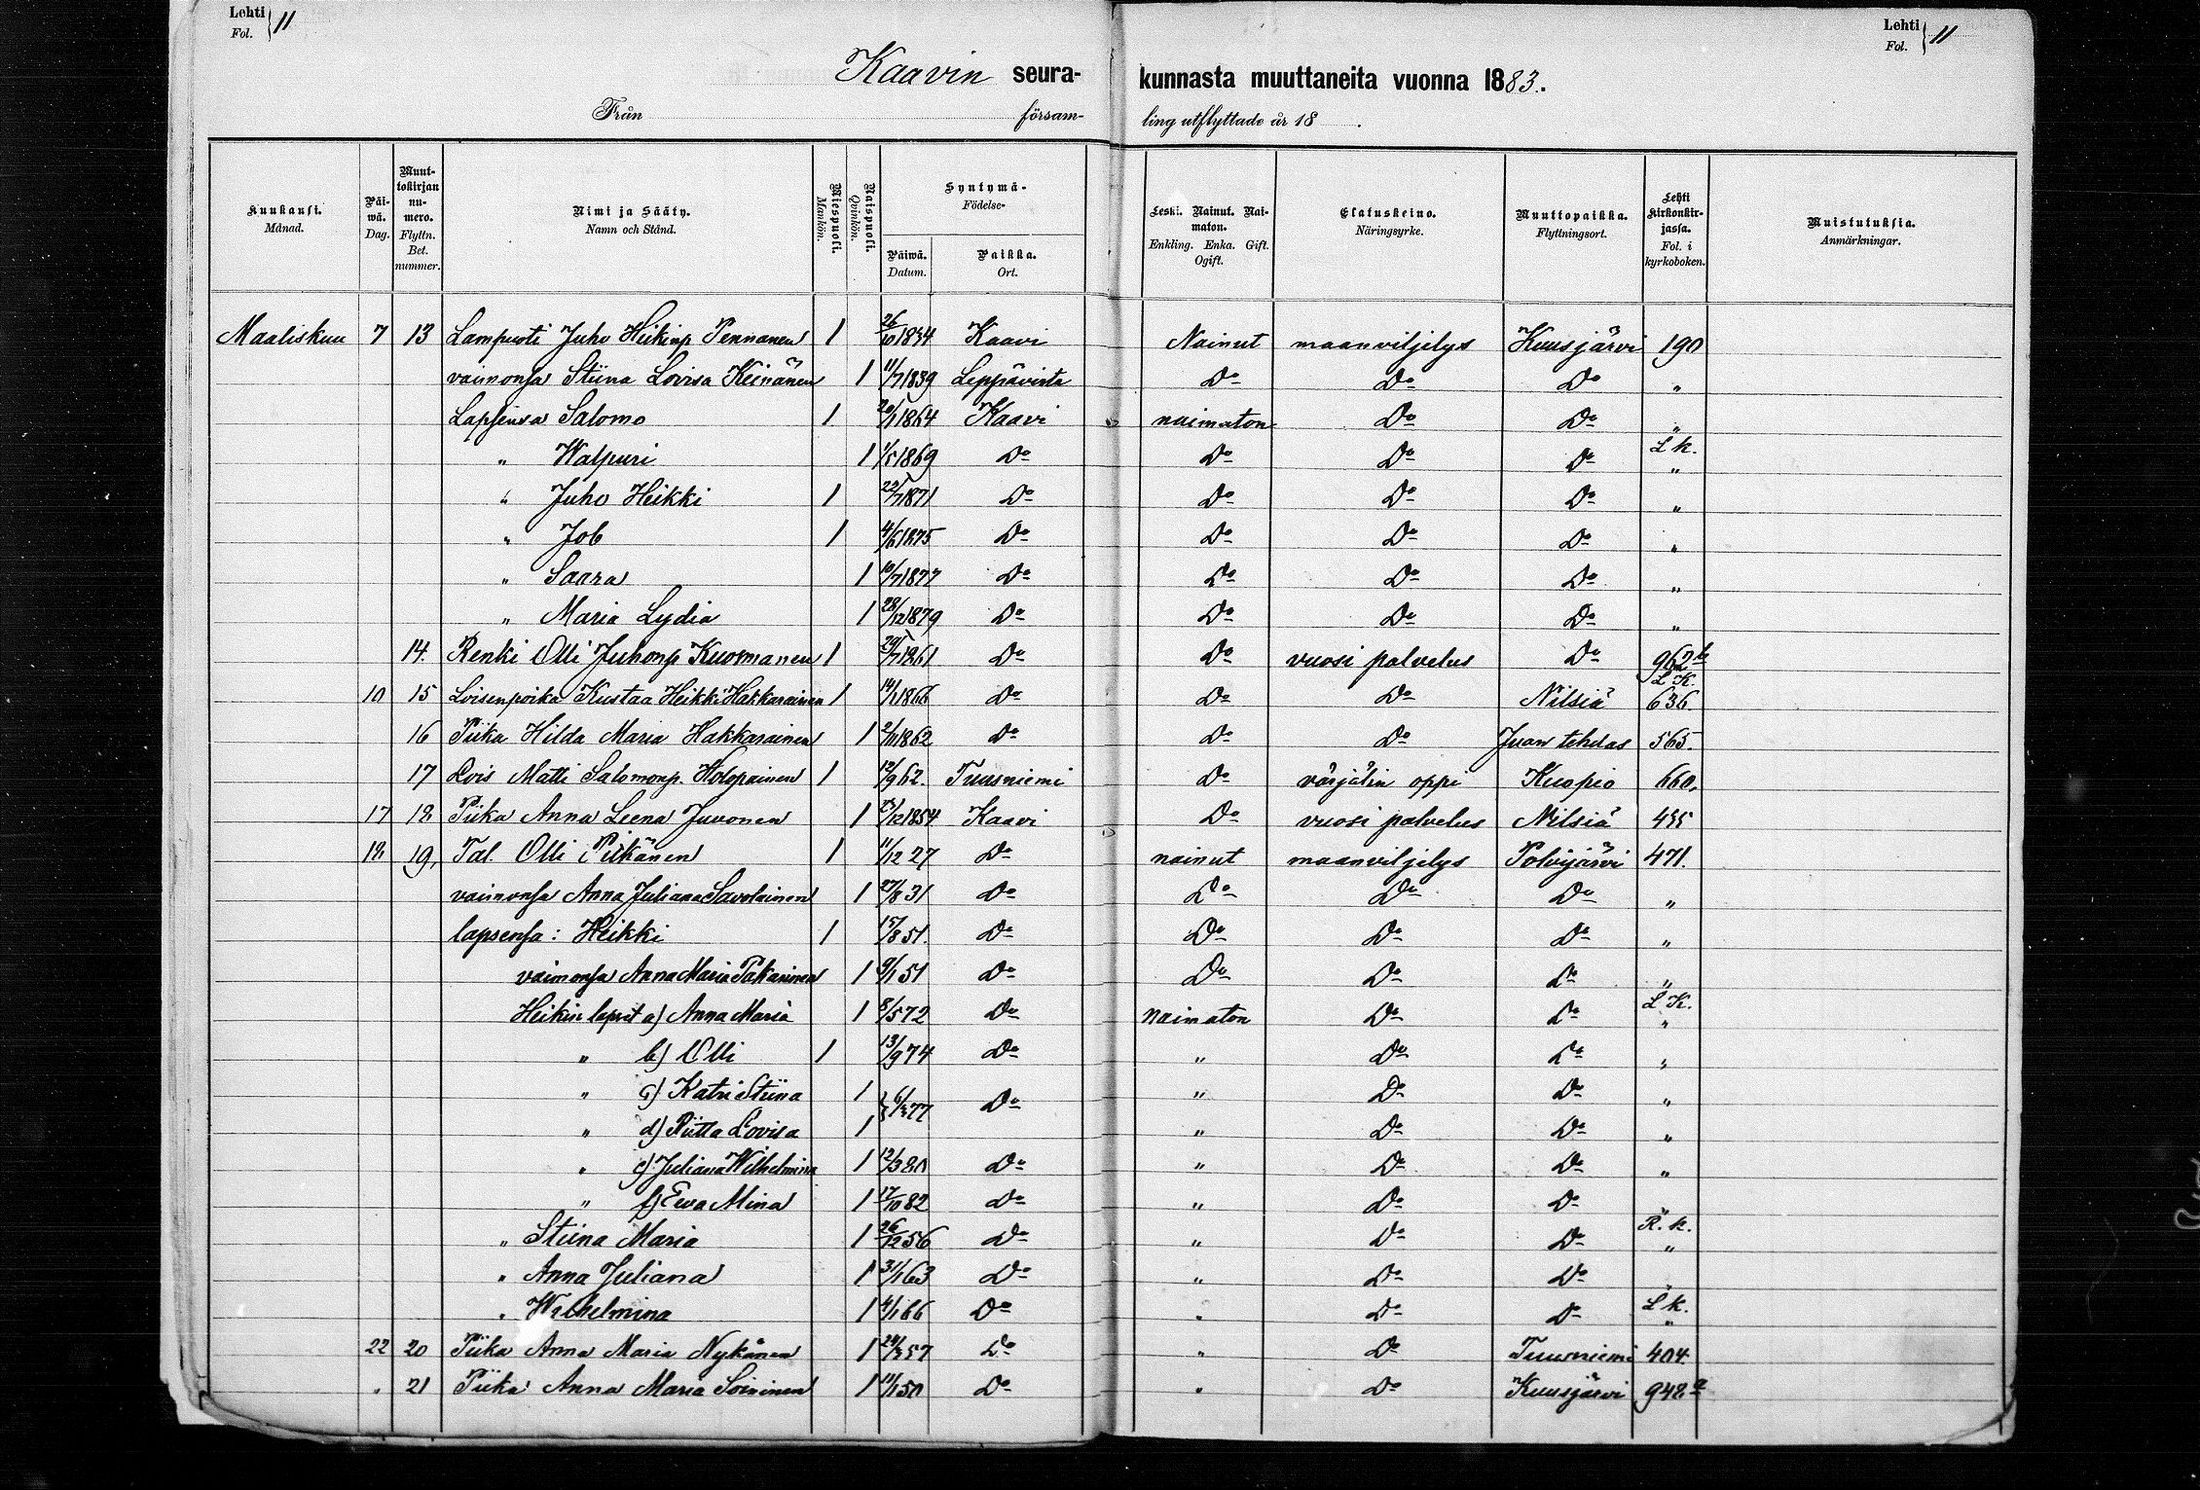 Lehti Fol. } 11
Lehti Fol. } 11
Kaavin seura- kunnasta muuttaneita vuonna 1883.
Från församling utflyttade år 18 .
Kuukausi. Månad. Päiwä. Dag. Muuttokirjan numero. Flyttn. Bet. nummer. Nimi ja Sääty. Namn och Stånd. Miespuoli. Mankön. Naispuoli. Qvinkön. Syntymä- Födelse- Päiwä. Datum. Paikka. Ort. Leski. Nainut. Naimaton. Enkling. Enka. Gift. Ogift. Elatuskeino. Näringsyrke. Muuttopaikka. Flyttningsort. Lehti kirkonkirjassa. Fol. i kyrkoboken. Muistutuksia. Anmärkningar.
Maaliskuu 7 13 Lampuoti Juho Heikinp Pennanen 1 26/10 1834 Kaavi Nainut maanviljelys Kuusjärvi 190
vaimonsa Stiina Lovisa Keinänen 1 11/7 1839 Leppävirta Do Do Do "
Lapsensa Salomo 1 1864 Kaavi naimaton Do Do "
" Walpuri 1 1/5 1869 Do Do Do Do L k. "
" Juho Heikki 1 22/7 1871 Do Do Do Do "
" Job 1 4/6 1875 Do Do Do Do "
" Saara 1 10/7 1877 Do Do Do Do "
" Maria Lydia 1 28/12 1879 Do Do Do Do "
14. Renki Olli Juhonp Kuosmanen 1 1861 Do Do vuosi palvelus Do 962 b
10 15 Loisenpoika Kustaa Heikki Hakkarainen 1 14/1 1866 Do Do Do Nilsiä L K. 636
16 Piika Hilda Maria Hakkarainen 1 2/11 1862 Do Do Do Juan tehdas 565.
17 Lois Matti Salomonp. Holopainen 1 12/9 62. Tuusniemi Do värjälin oppi Kuopio 660.
17 18 Piika Anna Leena Juvonen 1 1854 Kaavi Do vuosi palvelus Nilsiä 455
18 19. Tal. Olli Pitkänen 1 11/12 27 Do nainut maanviljelys Polvijärvi 471.
vaimonsa Anna Juliana Savolainen 1 27/8 31 Do Do Do Do "
lapsensa: Heikki 1 15/8 51. Do Do Do Do "
vaimonsa Anna Maria Pakarinen 1 9/1 51 Do Do Do Do "
Heikin lapset a) Anna Maria 1 8/5 72 Do naimaton Do Do L K. "
" b) Olli 1 13/9 74 Do " Do Do "
" c) Katri Stiina 1 } 6/3 77 Do " Do Do "
" d) Riitta Lovisa 1 " Do Do "
" e) Juliana Wilhelmina 1 12/3 80 Do " Do Do "
" f) Ewa Mina 1 17/10 82 Do " Do Do "
" Stiina Maria 1 26/12 56 Do " Do Do R. k. "
" Anna Juliana 1 31/1 63 Do " Do Do "
" Wilhelmina 1 4/1 66 Do " Do Do L k. "
22 20 Piika Anna Maria Nykänen 1 24/3 57 Do " Do Tuusniemi 404.
" 21 Piika Anna Maria Soininen 1 11/1 50 Do " Do Kuusjärvi 948 a